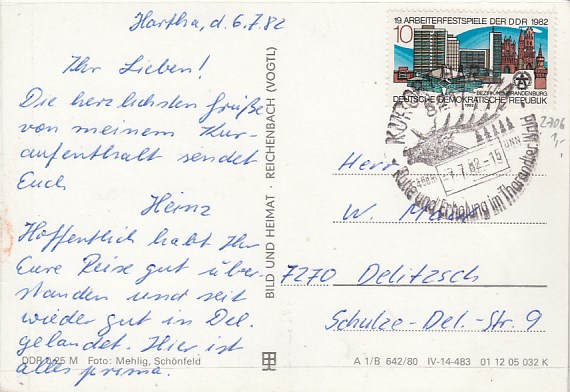 Hartha, d. 6.7.82
Ihr Lieben!
Die herzlichsten Grüße
von meinem Kur-
aufenthalt sendet
Euch
Heinz
Hoffentlich habt Ihr
Eure Reise gut über-
standen und seit
wieder gut in Del.
gelandet. Hier ist
alles prima.
DDR 0,25 M Foto: Mehlig, Schönfeld
BILD UND HEIMAT · REICHENBACH (VOGTL)
19. ARBEITERFESTSPIELE DER DDR 1982
10
BEZIRK NEUBRANDENBURG
DEUTSCHE DEMOKRATISCHE REPUBLIK
KURORT
-7.7.82-15
Ruhe und Erholung im Tharandter Wald
2706
1,-
Herr
W.
7270 Delitzsch
Schulze-Del.-Str. 9
A 1/B 642/80 IV-14-483 01 12 05 032 K